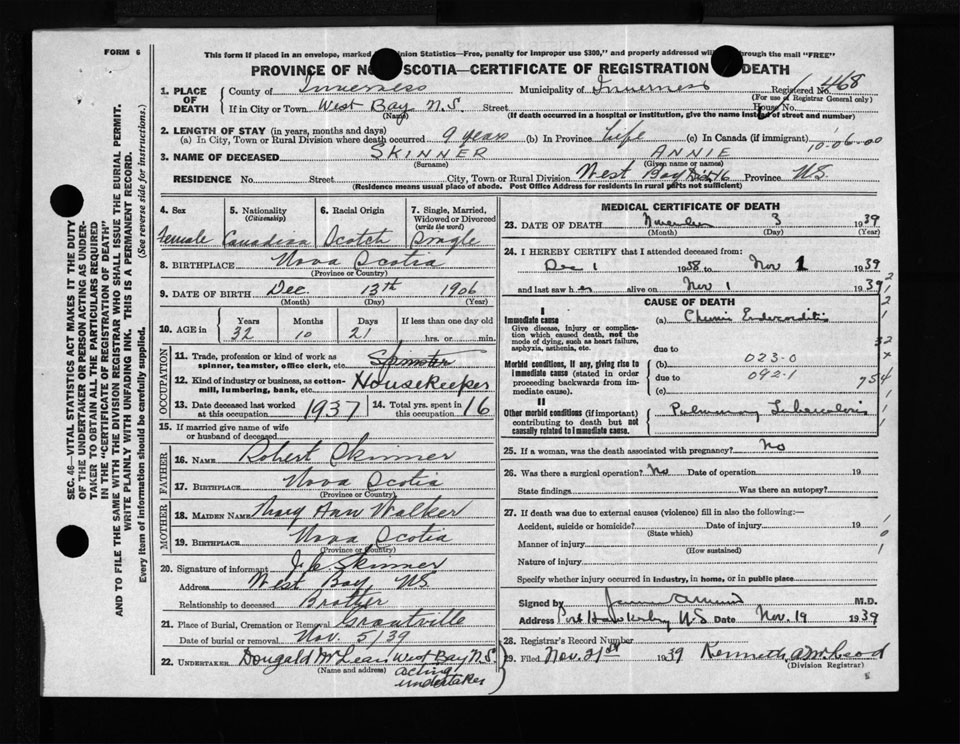 FORM 6
This form if placed in an envelope, marked nion Statistics—Free, penalty for improper use $300," and properly addressed will through the mail "FREE"
PROVINCE OF NO SCOTIA—CERTIFICATE OF REGISTRATION DEATH
1. PLACE OF DEATH
County of Inverness Municipality of Inverness Registered No. 468
(For use of Registrar General only)
If in City or Town West Bay N.S. Street House No.
(Name) (If death occurred in a hospital or institution, give the name instead of street and number)
2. LENGTH OF STAY (in years, months and days)
(a) In City, Town or Rural Division where death occurred 9 years (b) In Province Life (c) In Canada (if immigrant)
10-06-00
3. NAME OF DECEASED SKINNER ANNIE
(Surname) (Given name or names)
RESIDENCE No. Street City, Town or Rural Division West Bay Dis 16 Province N.S.
(Residence means usual place of abode. Post Office Address for residents in rural parts not sufficient)
SEC. 46—VITAL STATISTICS ACT MAKES IT THE DUTY
OF THE UNDERTAKER OR PERSON ACTING AS UNDER-
TAKER TO OBTAIN ALL THE PARTICULARS REQUIRED
IN THE "CERTIFICATE OF REGISTRATION OF DEATH"
AND TO FILE THE SAME WITH THE DIVISION REGISTRAR WHO SHALL ISSUE THE BURIAL PERMIT.
WRITE PLAINLY WITH UNFADING INK. THIS IS A PERMANENT RECORD.
Every item of information should be carefully supplied. (See reverse side for instructions.)
4. Sex 5. Nationality (Citizenship) 6. Racial Origin 7. Single, Married, Widowed or Divorced (write the word)
Female Canadian Scotch Single
8. BIRTHPLACE Nova Scotia
(Province or Country)
9. DATE OF BIRTH Dec. 13th 1906
(Month) (Day) (Year)
10. AGE in Years Months Days If less than one day old
32 10 21 hrs. or min.
OCCUPATION
11. Trade, profession or kind of work as spinner, teamster, office clerk, etc. Spinster
12. Kind of industry or business, as cotton-mill, lumbering, bank, etc. Housekeeper
13. Date deceased last worked at this occupation 1937 14. Total yrs. spent in this occupation 16
15. If married give name of wife or husband of deceased
FATHER
16. NAME Robert Skinner
17. BIRTHPLACE Nova Scotia
(Province or Country)
MOTHER
18. MAIDEN NAME Mary Ann Walker
19. BIRTHPLACE Nova Scotia
(Province or Country)
20. Signature of informant Skinner
Address West Bay, N.S.
Relationship to deceased Brother
21. Place of Burial, Cremation or Removal Grantville
Date of burial or removal Nov. 5/39
22. UNDERTAKER Dougald McLean West Bay N.S.
(Name and address) acting
undertaker
MEDICAL CERTIFICATE OF DEATH
23. DATE OF DEATH November 3 1939
(Month) (Day) (Year)
24. I HEREBY CERTIFY that I attended deceased from:
Dec 1 1938 to Nov 1 1939
and last saw her alive on Nov 1 1939
CAUSE OF DEATH
I
Immediate cause (a) Chronic Endocarditis
Give disease, injury or complica-
tion which caused death, not the
mode of dying, such as heart failure,
asphyxia, asthenia, etc. due to
Morbid conditions, if any, giving rise to (b) 023-0
immediate cause (stated in order due to 092-1
proceeding backwards from im-
mediate cause). (c)
754
II
Other morbid conditions (if important) Pulmonary Tuberculosis
contributing to death but not
causally related to immediate cause.
25. If a woman, was the death associated with pregnancy? No
26. Was there a surgical operation? No Date of operation 19
State findings Was there an autopsy?
27. If death was due to external causes (violence) fill in also the following:—
Accident, suicide or homicide? Date of injury 19
(State which)
Manner of injury
(How sustained)
Nature of injury
Specify whether injury occurred in industry, in home, or in public place
Signed by M.D.
Address Port Hawkesbury N.S. Date Nov. 19 1939
28. Registrar's Record Number
29. Filed Nov. 21st 1939 Kenneth A McLeod
(Division Registrar)